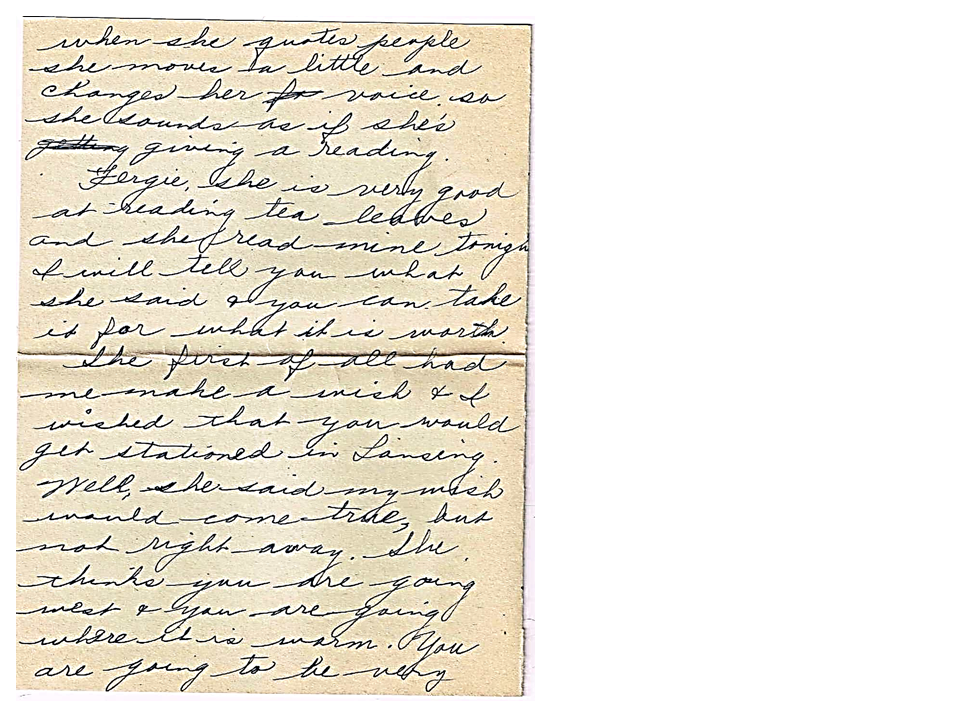 when she quotes people
she moves a little and
changes her fo voice so
she sounds as if she's
getting giving a reading.
Fergie, she is very good
at reading tea leaves
and she read mine tonigh
I will tell you what
she said & you can take
it for what it is worth.
She first of all had
me make a wish & I
wished that you would
get stationed in Lansing.
Well, she said my wish
would come true, but
not right away. She
thinks you are going
west & you are going
where it is warm. You
are going to be very